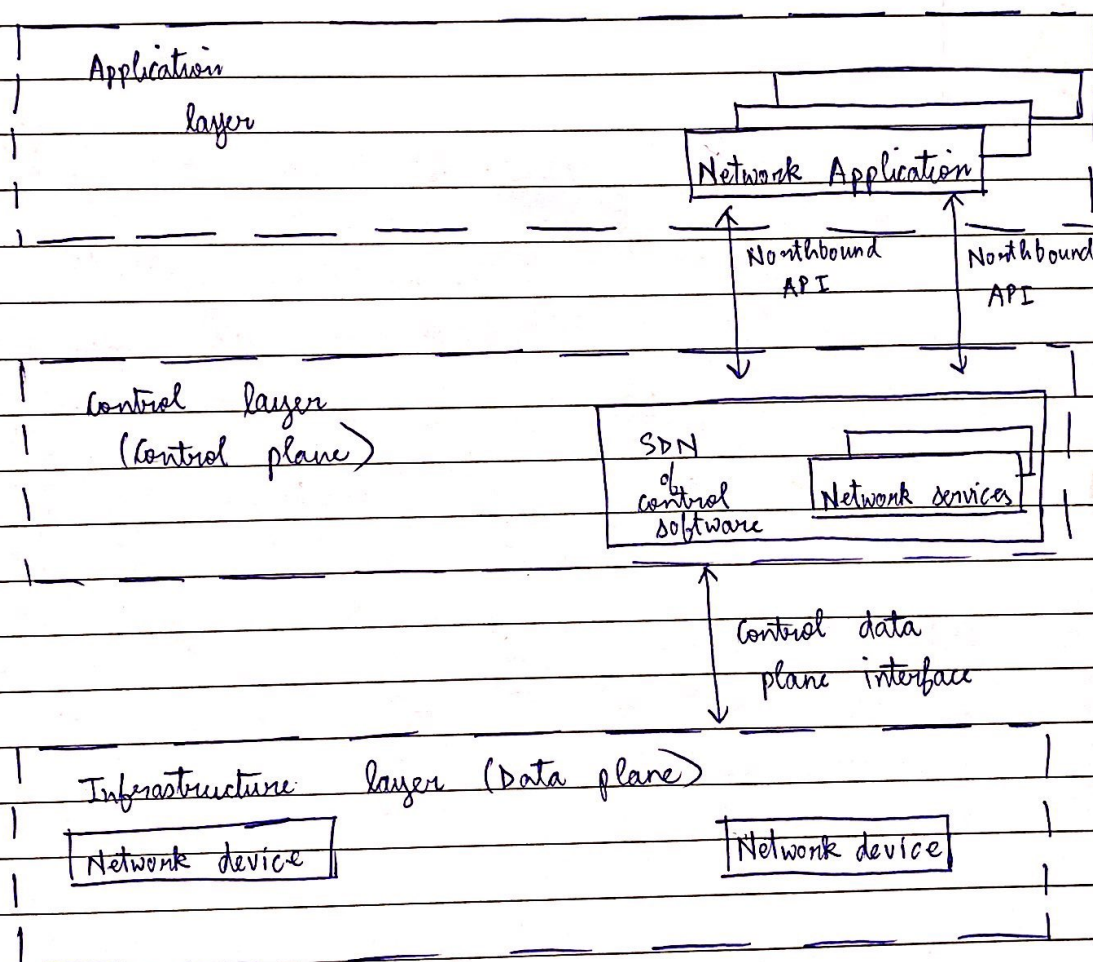 Application
layer
Network Application
Northbound
API
Northbound
API
Control layer
(Control plane)
SDN
control
software
Network services
Control data
plane interface
Infrastructure layer (Data plane)
Network device
Network device